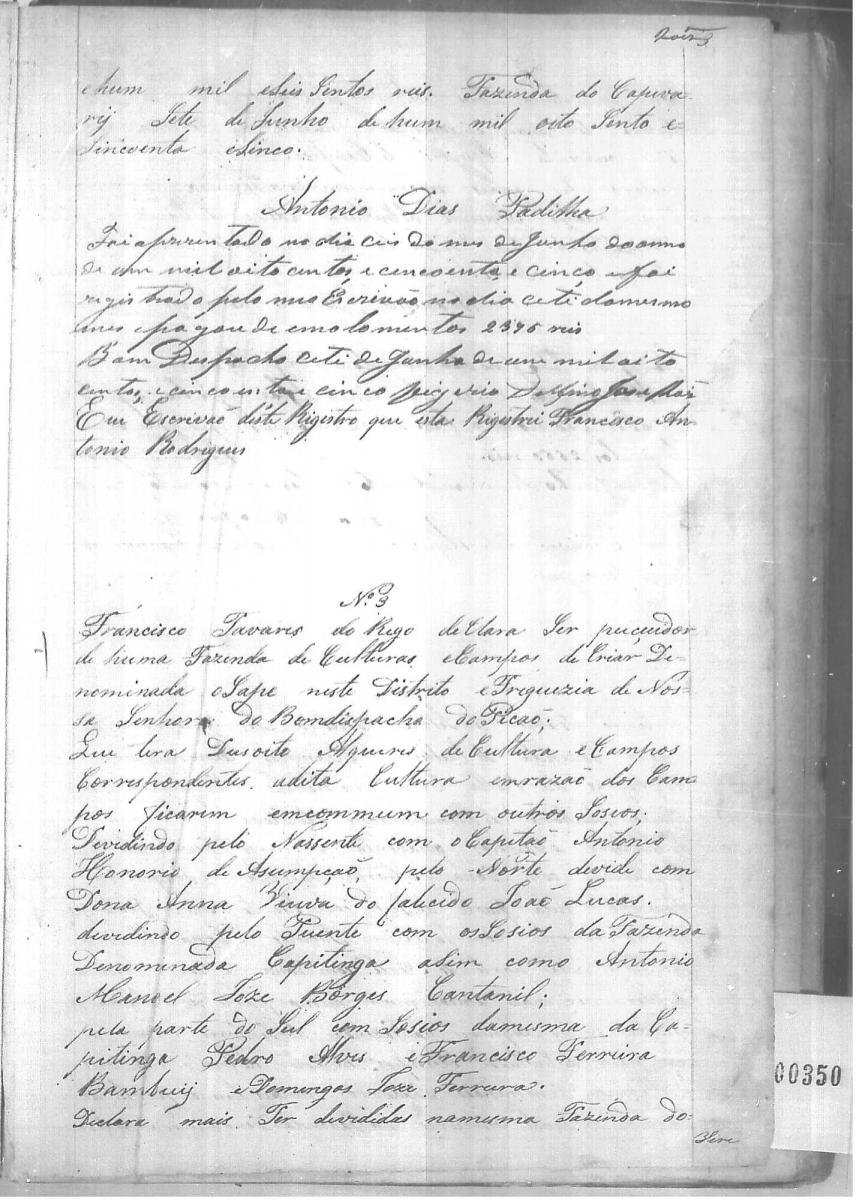 ehum mil eSeis Sentos reis. Fazenda do Capiva
rij Sete de Junho de hum mil oito Sento e
Sincoenta eSinco.
Antonio Dias Padilha
Foi aprezentado no dia ceis do mes de Junho do anno
de um mil oito centos e cincoenta e cinco e foi
registrado pelo meu Escrivão no dia cete do mesmo
mes e pagou de emolomentos 2375 reis
Bom Despacho cete de Junho de um mil oito
centos e cincoenta e cinco Joze
Eu Escrivaõ deste Registro que esta Registrei Francisco An
tonio Rodrigues
Nº 3
Francisco Tavares do Rego deClara Ser puçuidor
de huma Fazenda de Culturas, eCampos de Criar De=
nominada oSape neste Distrito e Friguezia de Nos=
sa Senhora do Bomdispacha do Picaõ;
Que tera Dusoito Alqueres de Cultura e Campos
Correspondentes. adita Cultura emrazaõ dos Cam
pos ficarem emcommum com outros Sosios;
Dividindo pelo Nassente com oCapitaõ Antonio
Honorio de Asumpçaõ, pelo Norte devide com
Dona Anna Viuva do falecido Joaõ Lucas.
dividindo pelo Puente com osSosios da Fazenda
Denominada Capitinga asim como Antonio
Manoel Joze Borges Cantanil;
pela parte do Sul com Sosios damesma da Ca=
pitinga Pedro Alves e Francisco Ferreira
Bambuij e Domingos Joze Ferreira.
Declara mais Ter devididas namesma Fazenda do=
00350